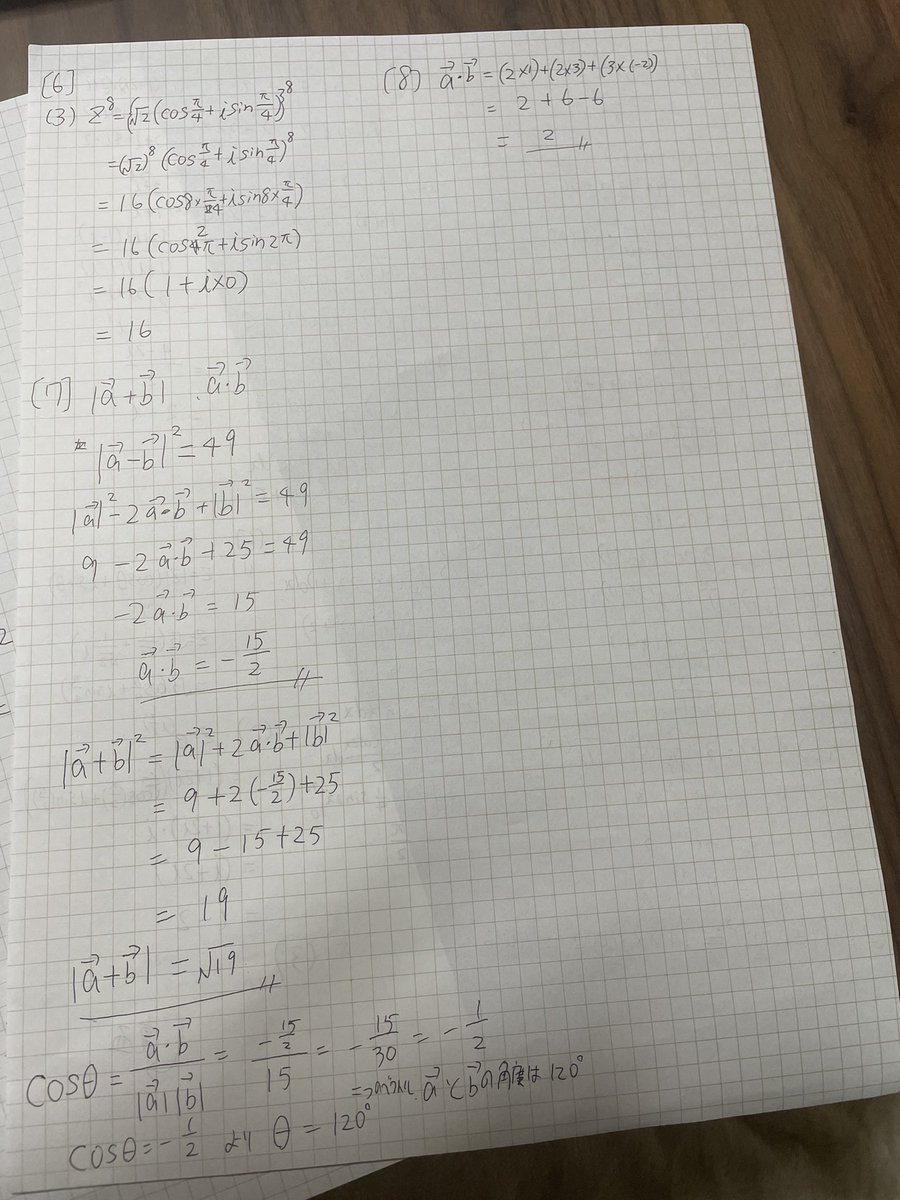 [6]
(3) Z⁸ = {√2(cos π/4 + i sin π/4)}⁸
= (√2)⁸ (cos π/4 + i sin π/4)⁸
= 16 (cos 8 × π/4 + i sin 8 × π/4)
= 16 (cos 2π + i sin 2π)
= 16 ( 1 + i×0)
= 16
[7] |a⃗+b⃗| . a⃗·b⃗
|a⃗-b⃗|² = 49
|a⃗|² - 2a⃗·b⃗ + |b⃗|² = 49
9 - 2a⃗·b⃗ + 25 = 49
-2a⃗·b⃗ = 15
a⃗·b⃗ = -15/2
|a⃗+b⃗|² = |a⃗|² + 2a⃗·b⃗ + |b⃗|²
= 9 + 2(-15/2) + 25
= 9 - 15 + 25
= 19
|a⃗+b⃗| = √19
cosθ = a⃗·b⃗/|a⃗||b⃗| = (-15/2)/15 = -15/30 = -1/2
cosθ = -1/2 より θ = 120°
a⃗とb⃗の角度は120°
(8) a⃗·b⃗ = (2×1)+(2×3)+(3×(-2))
= 2 + 6 - 6
= 2